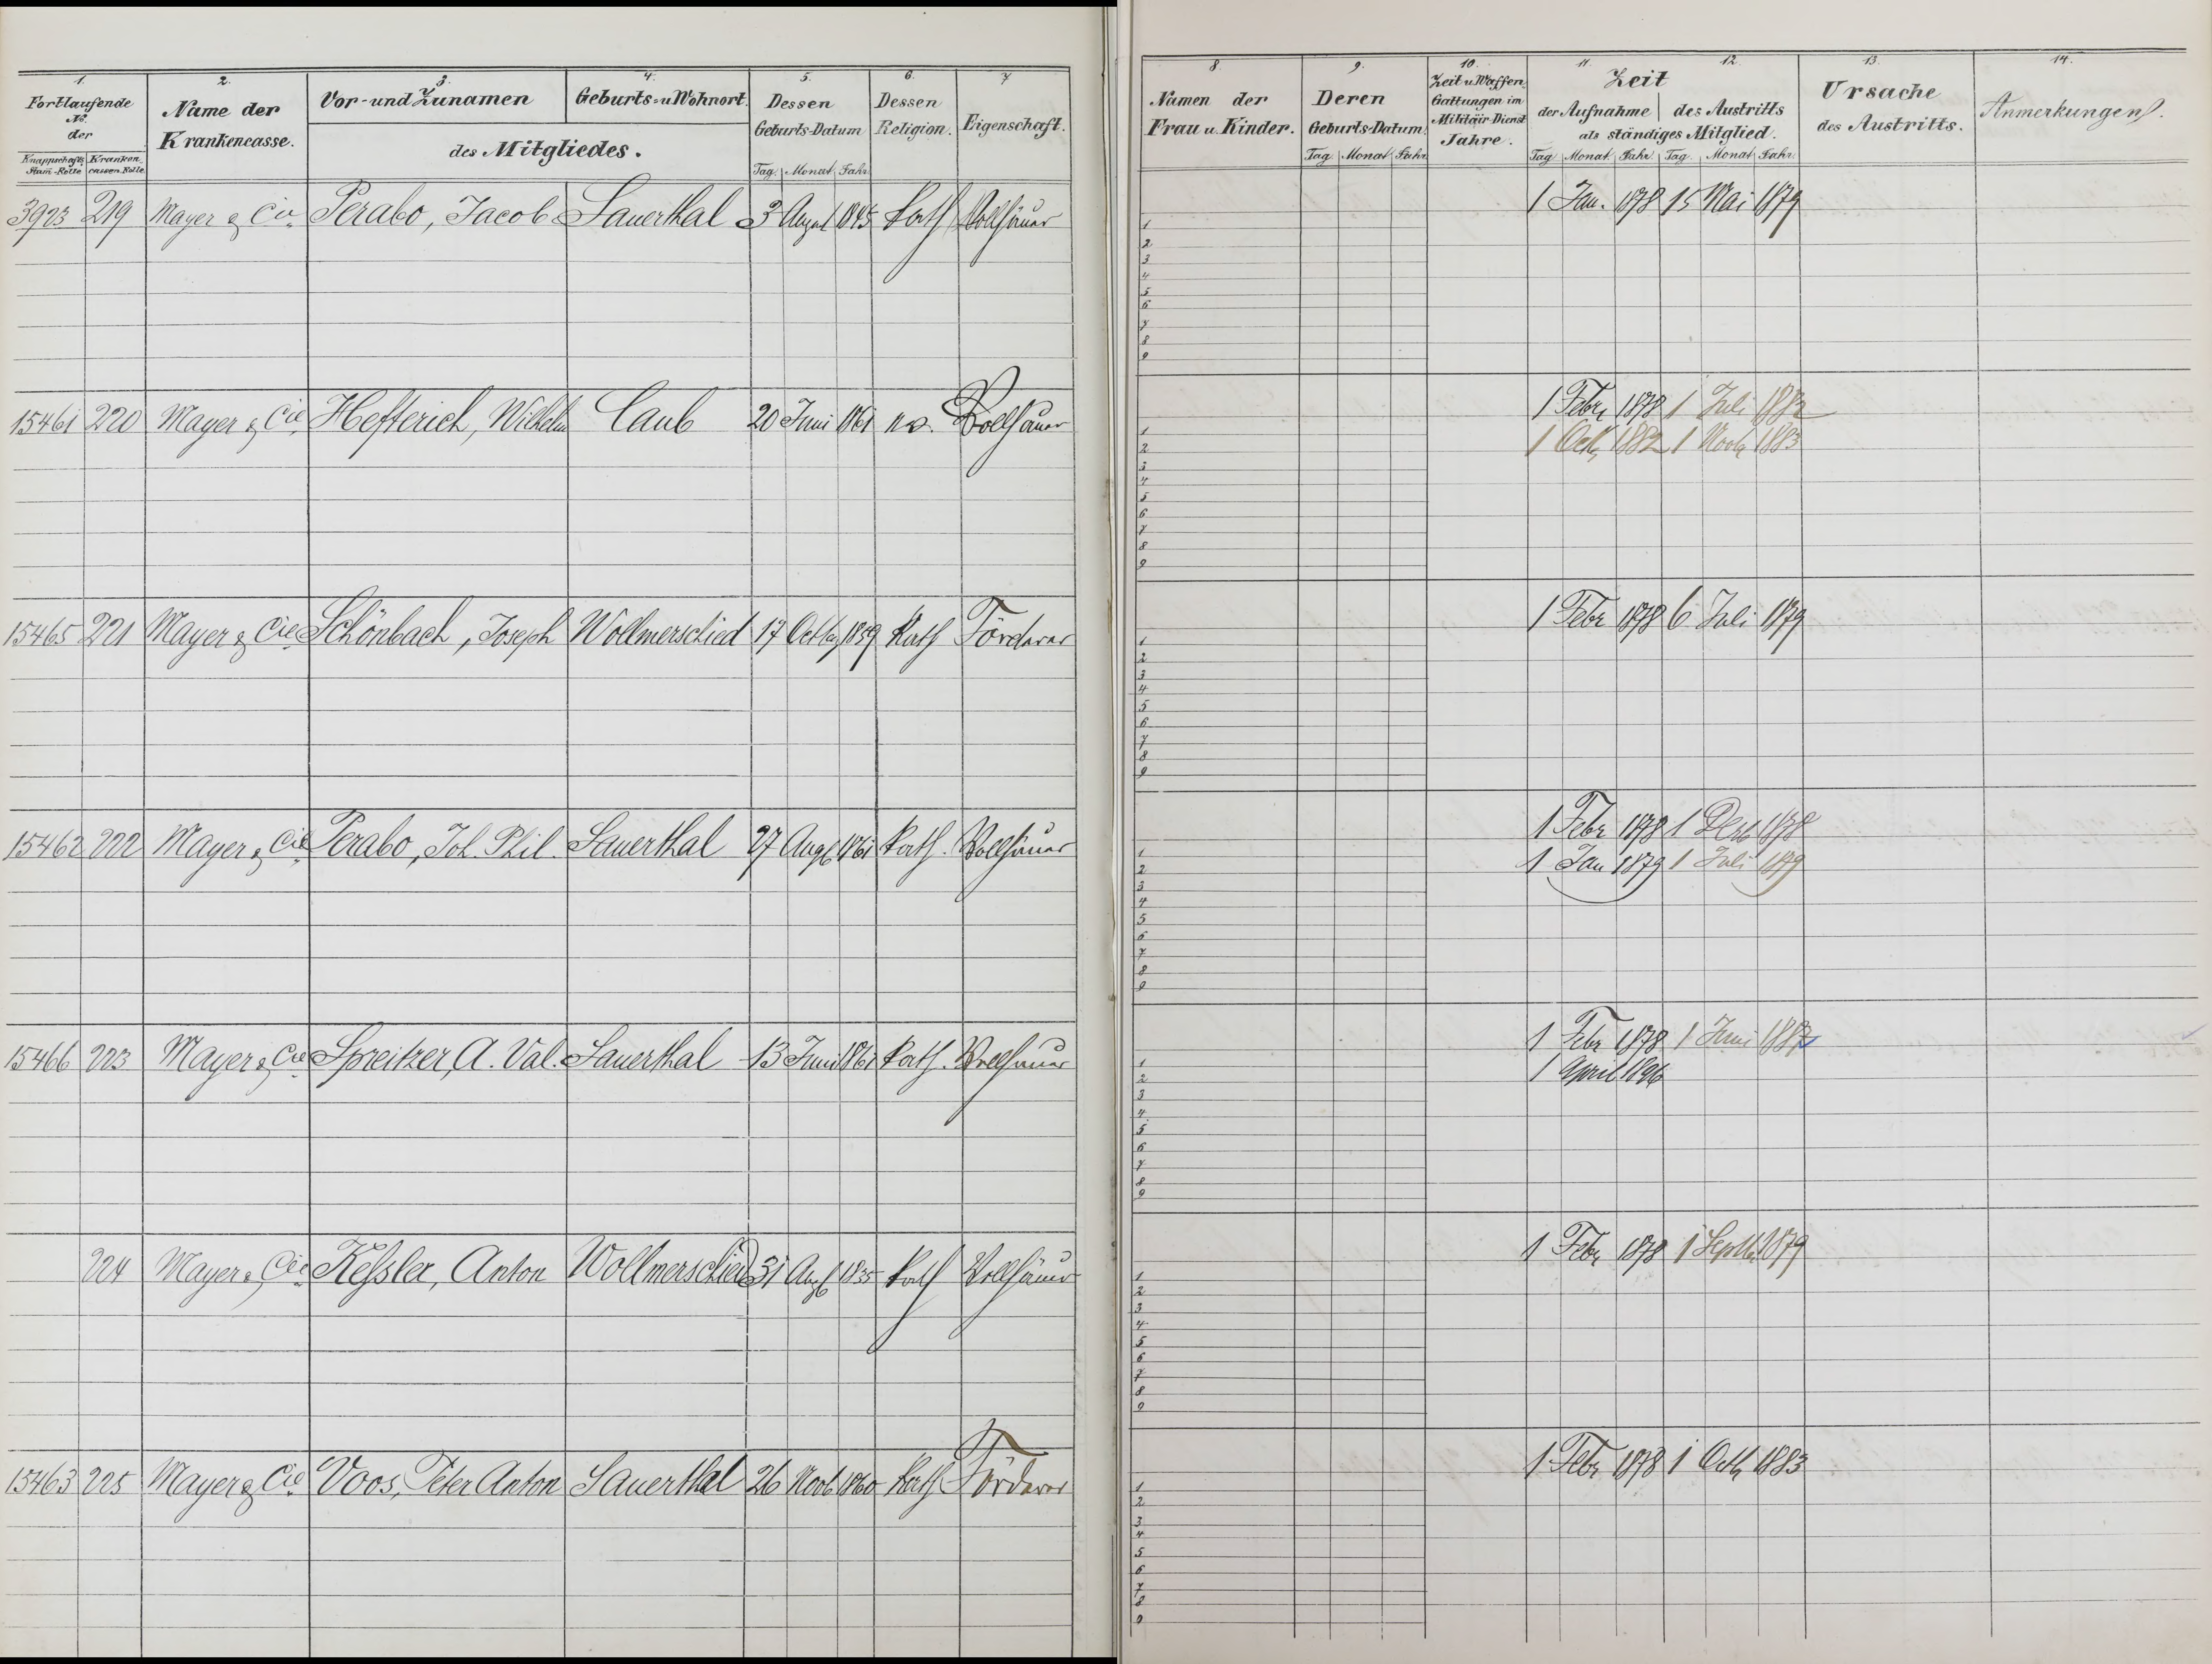 1. 2. 3. 4. 5. 6. 7
Fortlaufende No. der
Knappschafts Stam-Rolle Kranken cassen-Rolle
Name der Krankencasse.
Vor- und Zunamen Geburts- u Wohnort.
des Mitgliedes.
Dessen Geburts-Datum
Tag. Monat. Jahr.
Dessen Religion.
Eigenschaft.
8. 9. 10. 11. 12. 13. 14.
Namen der Frau u. Kinder.
Deren Geburts-Datum.
Tag Monat Jahr.
Zeit u Waffen Gattungen im Militair-Dienst Jahre.
Zeit
der Aufnahme des Austritts
als ständiges Mitglied.
Tag Monat. Jahr. Tag. Monat Jahr.
Ursache des Austritts.
Anmerkungen.
3923 219 Mayer & Cie. Perabo, Jacob Sauerthal 3 August 1845 kath Vollhäuer 1 Jan. 1878 15 Mai 1879
1
2
3
4
5
6
7
8
9
15461 220 Mayer & Cie. Hefferich, Wilhelm Caub 20 Juni 1861 Vollhäuer 1 Febr 1878 1 Juli 1882
1 Octb 1882 1 Novb 1883
1
2
3
4
5
6
7
8
9
15465 221 Mayer & Cie. Schönbach, Joseph Wollmerschied 17 Octbr 1859 Kath Förderer 1 Febr 1878 6 Juli 1879
1
2
3
4
5
6
7
8
9
15462 222 Mayer & Cie. Perabo, Joh. Phil. Sauerthal 27 Aug 1861 kath. Vollhäuer 1 Febr 1878 1 Decb 1878
1 Jan 1879 1 Juli 1879
1
2
3
4
5
6
7
8
9
15466 223 Mayer & Cie Spreitzer, A. Val. Sauerthal 13 Juni 1861 kath. Vollhäuer 1 Febr 1878 1 Juni 1887
1 April 1896
1
2
3
4
5
6
7
8
9
224 Mayer & Cie. Keßler, Anton Wollmerschied 31 Aug 1835 kath Vollhäuer 1 Febr 1878 1 Septbr 1879
1
2
3
4
5
6
7
8
9
15463 225 Mayer & Cie. Voos, Peter Anton Sauerthal 26 Novb 1860 kath Förderer 1 Febr 1878 1 Octb 1883
1
2
3
4
5
6
7
8
9